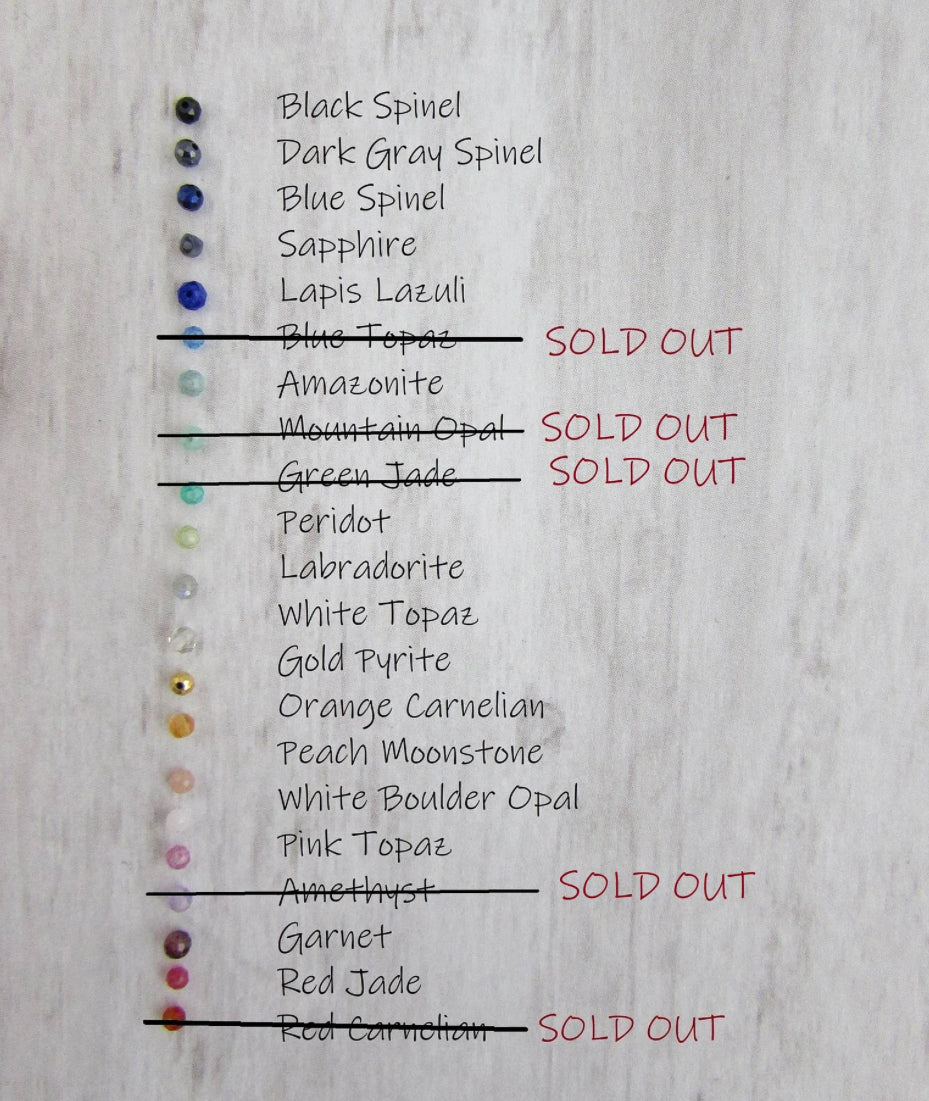 Black Spinel
Dark Gray Spinel
Blue Spinel
Sapphire
Lapis Lazuli
Blue Topaz SOLD OUT
Amazonite
Mountain Opal SOLD OUT
Green Jade SOLD OUT
Peridot
Labradorite
White Topaz
Gold Pyrite
Orange Carnelian
Peach Moonstone
White Boulder Opal
Pink Topaz
Amethyst SOLD OUT
Garnet
Red Jade
Red Carnelian SOLD OUT